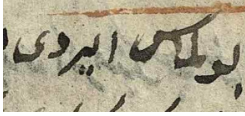 بولماس ایردی